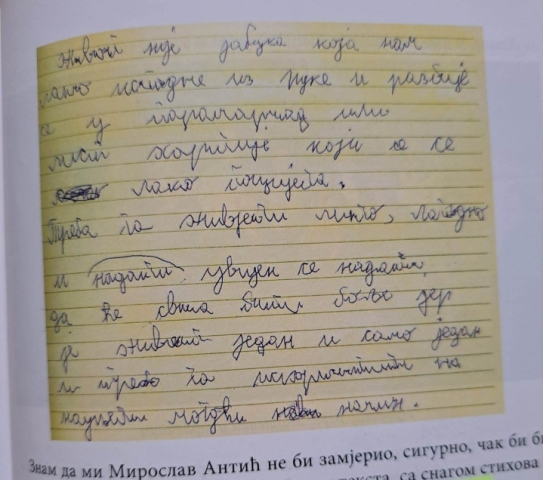 живот није јабука која нам
лако испадне из руке и разбије
се у парампарчад или
лист хартије који се
лако поцијепа.
Треба га живјети лијепо, лагодно
и надати увијек се надати,
да ће свима бити боље јер
је живот један и само један
и треба га искористити на
најљепши могући начин.
Знам да ми Мирослав Антић не би замјерио, сигурно, чак би
са снагом стихова